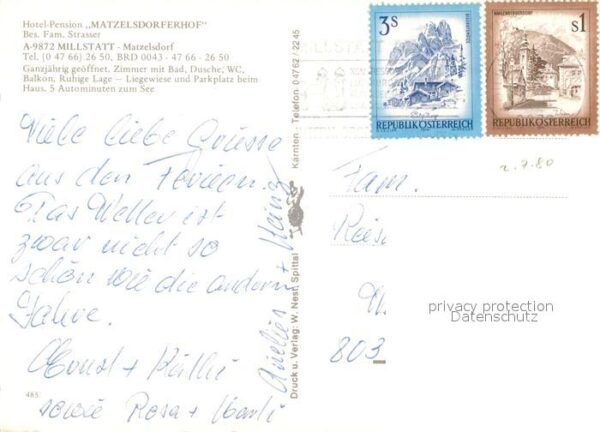 Hotel-Pension „MATZELSDORFERHOF"
Bes. Fam. Strasser
A-9872 MILLSTATT - Matzelsdorf
Tel. (0 47 66) 26 50, BRD 0043 - 47 66 - 26 50
Ganzjährig geöffnet. Zimmer mit Bad, Dusche, WC,
Balkon, Ruhige Lage – Liegewiese und Parkplatz beim
Haus. 5 Autominuten zum See
Viele liebe Grüsse
aus den Ferien.
Das Wetter ist
zwar nicht so
schön wie die andern
Jahre.
Ernst +
sowie Rosa +
+ Heinz
485
Druck u. Verlag: W. Nest, Spittal
Kärnten - Telefon 0 47 62 / 22 45
3S
REPUBLIK ÖSTERREICH
s1
REPUBLIK ÖSTERREICH
2.7.80
Fam.
803
privacy protection
Datenschutz